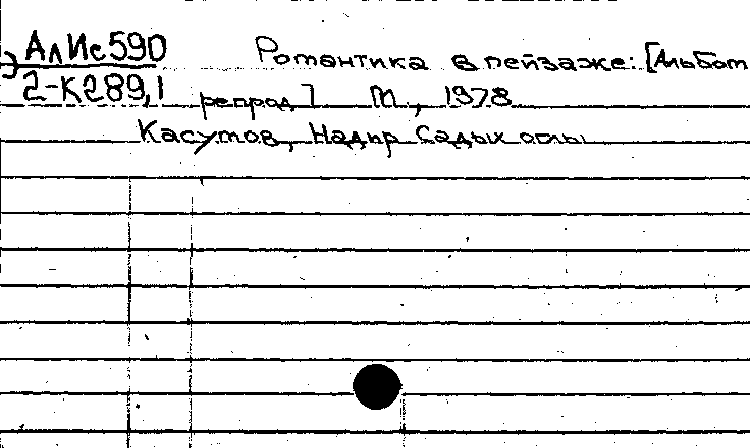 АлИс590 Романтика в пейзаже: [Альбом
2-К289,1 репрод] М, 1978
Касумов, Надир Садых оглы